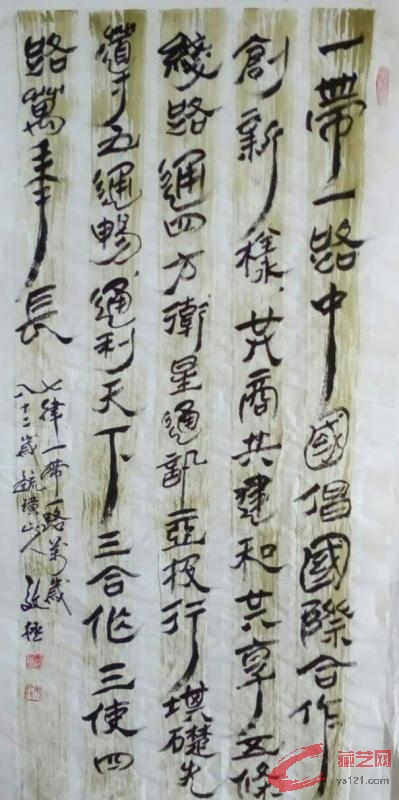 一帶一路中國倡國際合作
創新樣共商共建和共享五條
綫路通四方衛星通訊亞投行礎先
導五通暢通利天下三合作三使四
路萬年長
七律一带一路萬歲
八十二歲山人
藏艺网
ys121.com